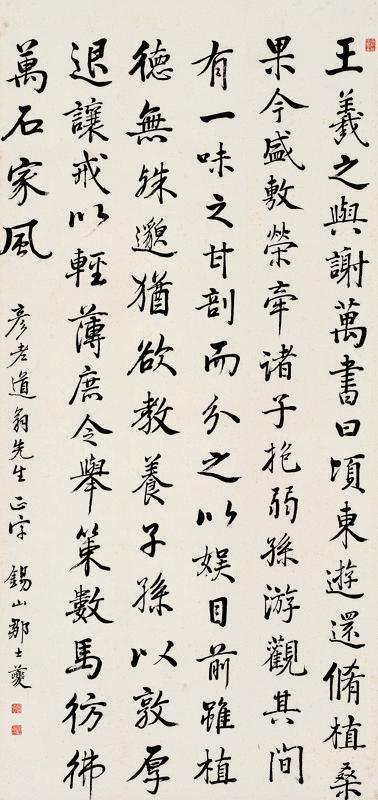 王羲之與謝萬書曰頃東遊還脩植桑
果今盛敷榮牽諸子抱弱孫游觀其間
有一味之甘剖而分之以娛目前雖植
德無殊邈猶欲教養子孫以敦厚
退讓戒以輕薄庶令舉策數馬彷彿
萬石家風
彥老道翁先生正字 錫山鄒士夔